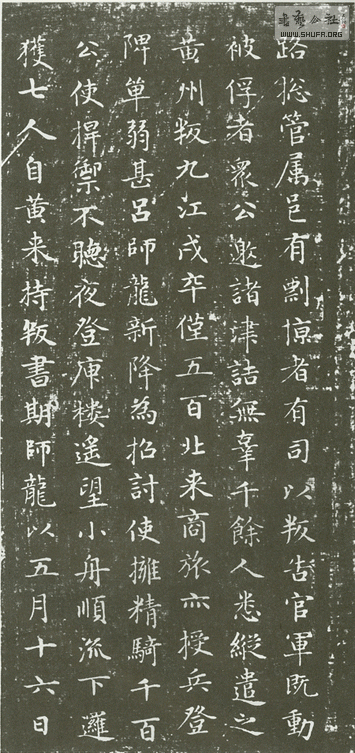 書藝公社
WWW.SHUFA.ORG
路捴管属邑有剽㥫者有司以叛告官軍既動
被俘者衆公邀諸津詰無辜千餘人悉縱遣之
黄州叛九江戍卒僅五百北来商旅亦授兵登
陴单弱甚吕師龍新降為招討使擁精騎千百
公使捍禦不聴夜登庳楼遥望小舟順流下邏
獲七人自黄来持叛書期師龍以五月十六日